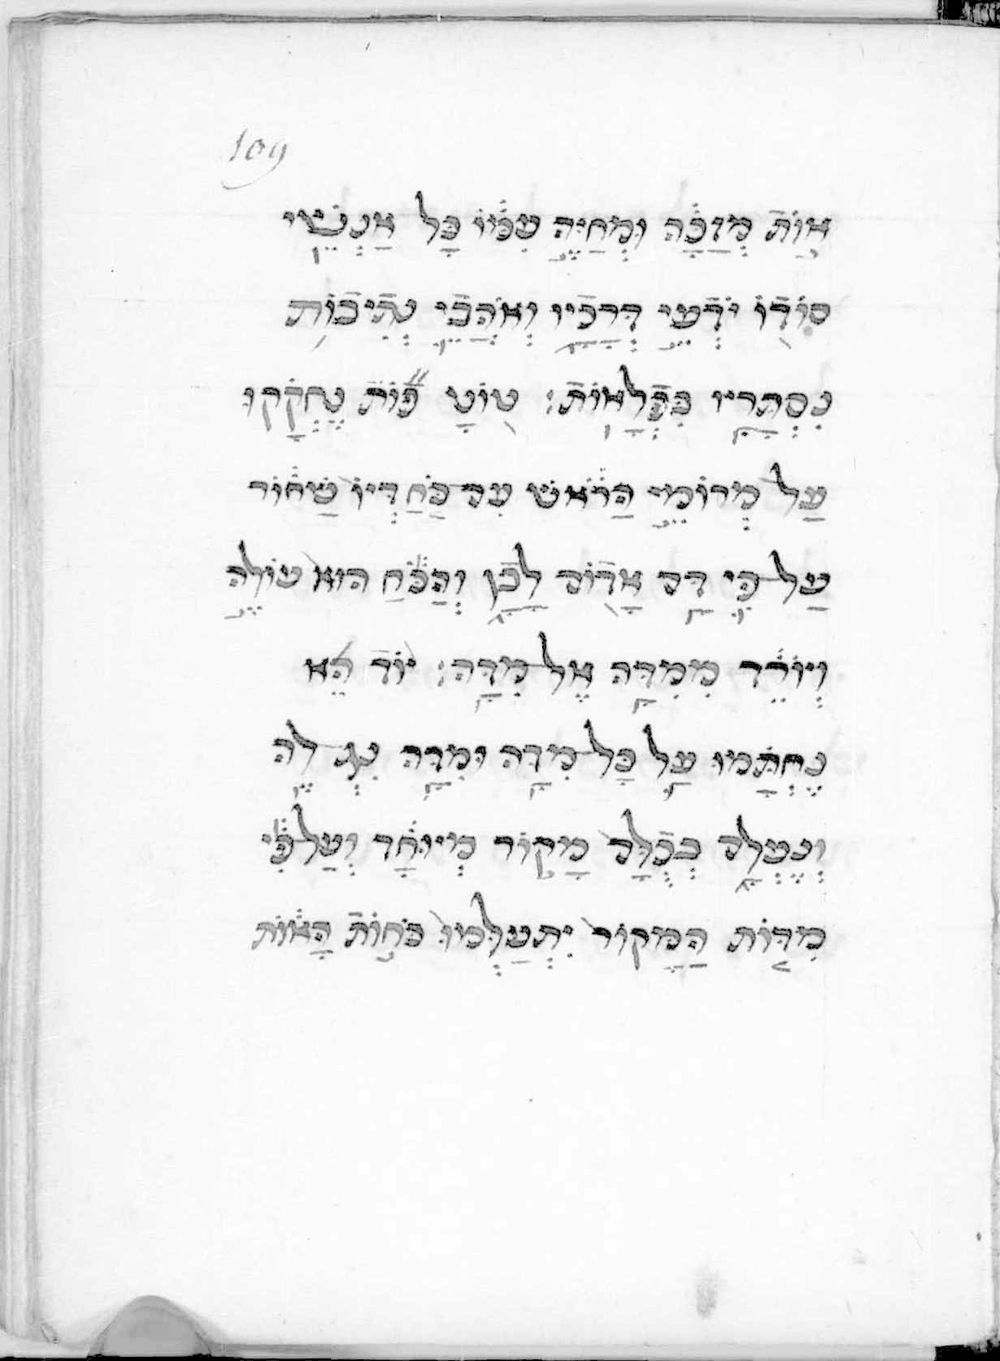 109
אוֹת מְזַכֶּה וּמְחַיֶּה עִמּוֹ כָּל אַנְשֵׁי
סוֹדוֹ יֹדְעֵי דְּרָכָיו וְאֹהֲבֵי נְתִיבוֹת
נִסְתָּרָיו בִּפְלָאוֹת׃ טוֹטָ פוֹת נֶחְקְקוּ
עַל מְרוֹמֵי הַרֹאשׁ עִם כֹּחַ דְיוֹ שַׁחוֹר
עַל פִּי דָם אָדוֹם לָבָן וְהַכֹּחַ הוּא עוֹלֶה
וְיוֹרֵד מִמִּדָּה אֶל מִדָּה׃ יוֹד הֵא
נֶחְתָּמוּ עַל כָּל מִדָּה וּמִדָּה
וְנֶעְלָם מָקוֹר מְיוּחָד וְעַל פִּי
מִדּוֹת הַמָּקוֹר יִתְעַלְּמוּ כֹּחוֹת הָאוֹת